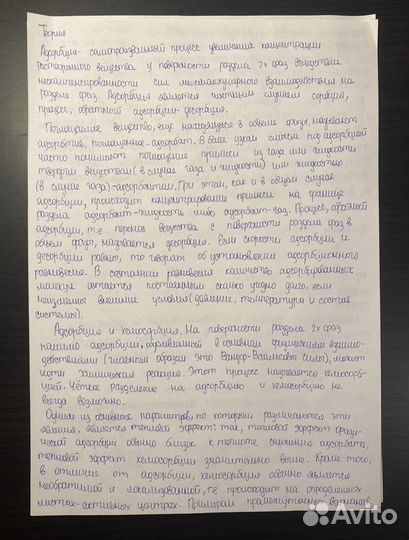 Теория
Адсорбция - самопроизвольный процесс увеличения концентрации
растворенного вещества у поверхности раздела 2х фаз вследствие
нескомпенсированности сил межмолекулярного взаимодействия на
разделе фаз. Адсорбция является частным случаем сорбции,
процесс, обратный адсорбции-десорбция.
Поглощаемое вещество, еще находящееся в объеме фазы, называют
адсорбтив, поглощенное-адсорбат. В более узком смысле под адсорбцией
часто понимают поглощение примеси из газа или жидкости
твердым веществом (в случае газа и жидкости) или жидкостью
(в случае газа)-адсорбентом. При этом, как и в общем случае
адсорбции, происходит концентрирование примеси на границе
раздела адсорбент-жидкость либо адсорбент-газ. Процесс, обратный
адсорбции, т.е перенос вещества с поверхности раздела фаз в
объем фазы, называется десорбция. Если скорости адсорбции и
десорбции равны, то говорят об установлении адсорбционного
равновесия. В состоянии равновесия количество адсорбированных
молекул остается постоянным сколь угодно долго, если
неизменны внешние условия (давление, температура и состав
системы).
Адсорбция и хемосорбция. На поверхности раздела 2х фаз
помимо адсорбции, обусловленной в основном физическими взаимо-
действиями (главным образом это Ван-дер-Ваальсовы силы), может
идти химическая реакция. Этот процесс называется хемосорб-
цией. Чёткое разделение на адсорбцию и хемосорбцию не
всегда возможно.
Одним из основных параметров, по которым различаются эти
явления, является тепловой эффект: так, тепловой эффект физи-
ческой адсорбции обычно близок к теплоте сжижения адсорбата,
тепловой эффект хемосорбции значительно выше. Кроме того,
в отличие от адсорбции, хемосорбция обычно является
необратимой и локализованной, т.е происходит на определенных
местах-активных центрах. Примером промежуточных вариантов,
Avito